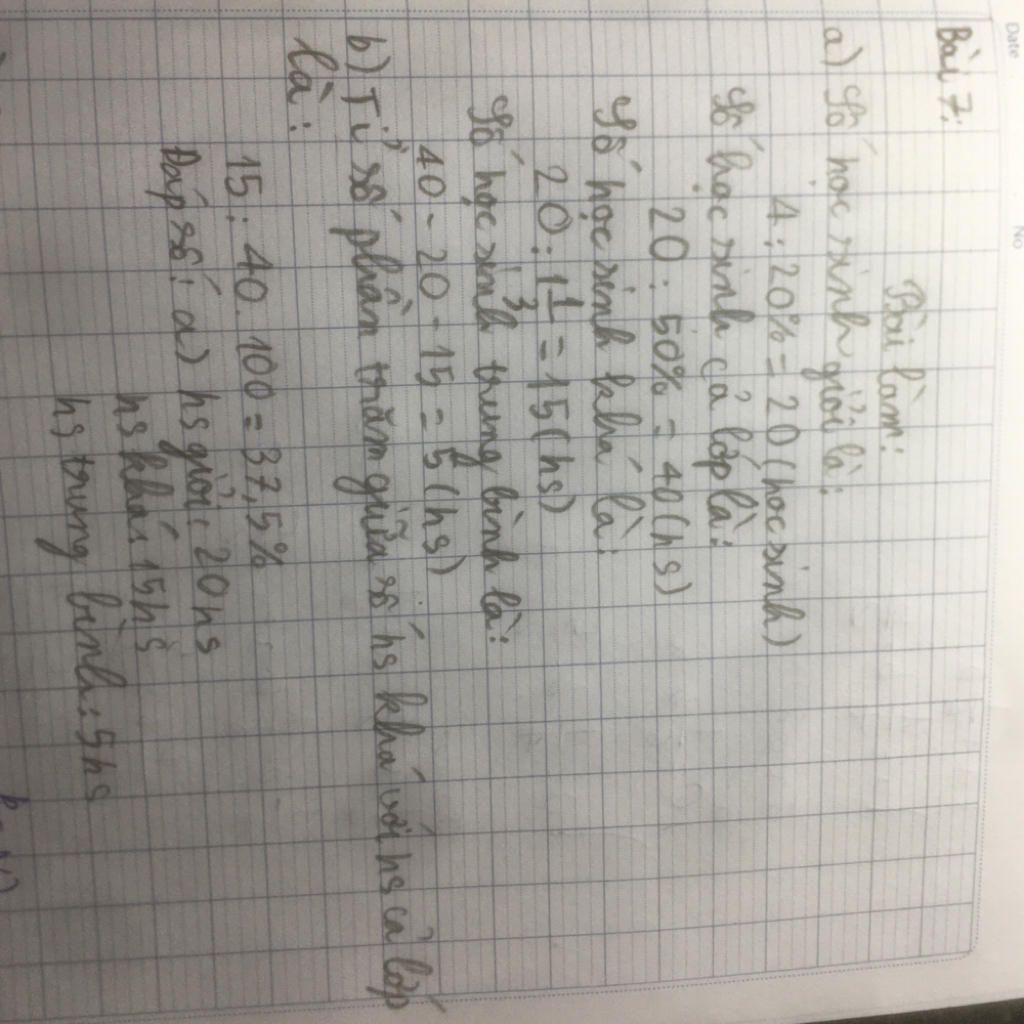 Date
No
Bài 7:
Bài làm:
a) Số học sinh giỏi là:
4 : 20% = 20 (học sinh)
Số học sinh cả lớp là:
20 : 50% = 40 (hs)
Số học sinh khá là:
20 : 1 1/3 = 15 (hs)
Số học sinh trung bình là:
40 - 20 - 15 = 5 (hs)
b) Tỉ số phần trăm giữa số hs khá với hs cả lớp
là:
15 : 40 . 100 = 37,5%
Đáp số: a) hs giỏi: 20 hs
hs khá: 15 hs
hs trung bình: 5 hs